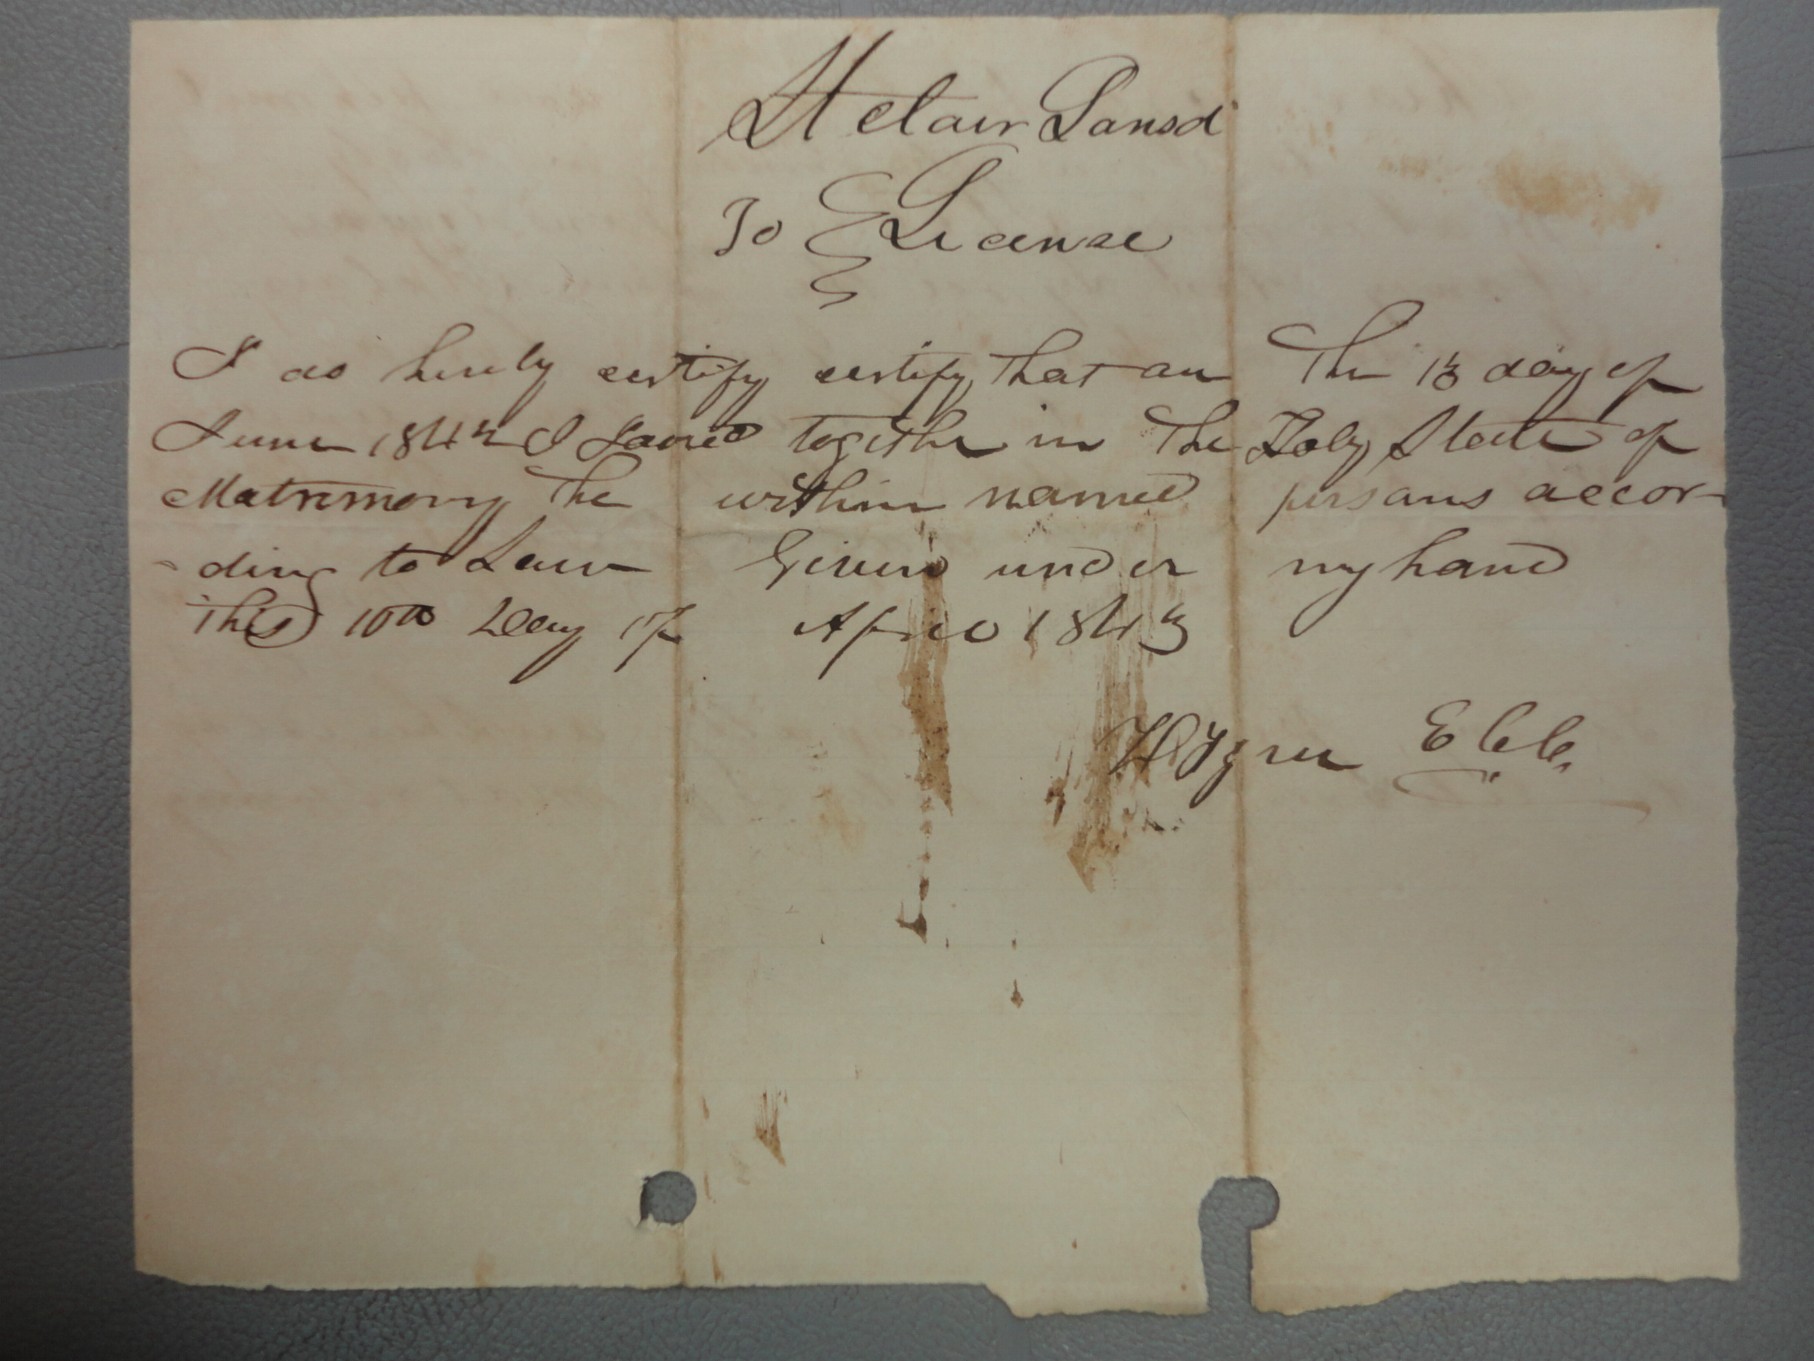 St clair Pansd
To License
I do hereby certify certify that on The 13 day of
June 1842 I Joined together in The Holy State of
Matrimony The within named persons accor-
-ding to Law Given under my hand
This 10th Day of April 1843